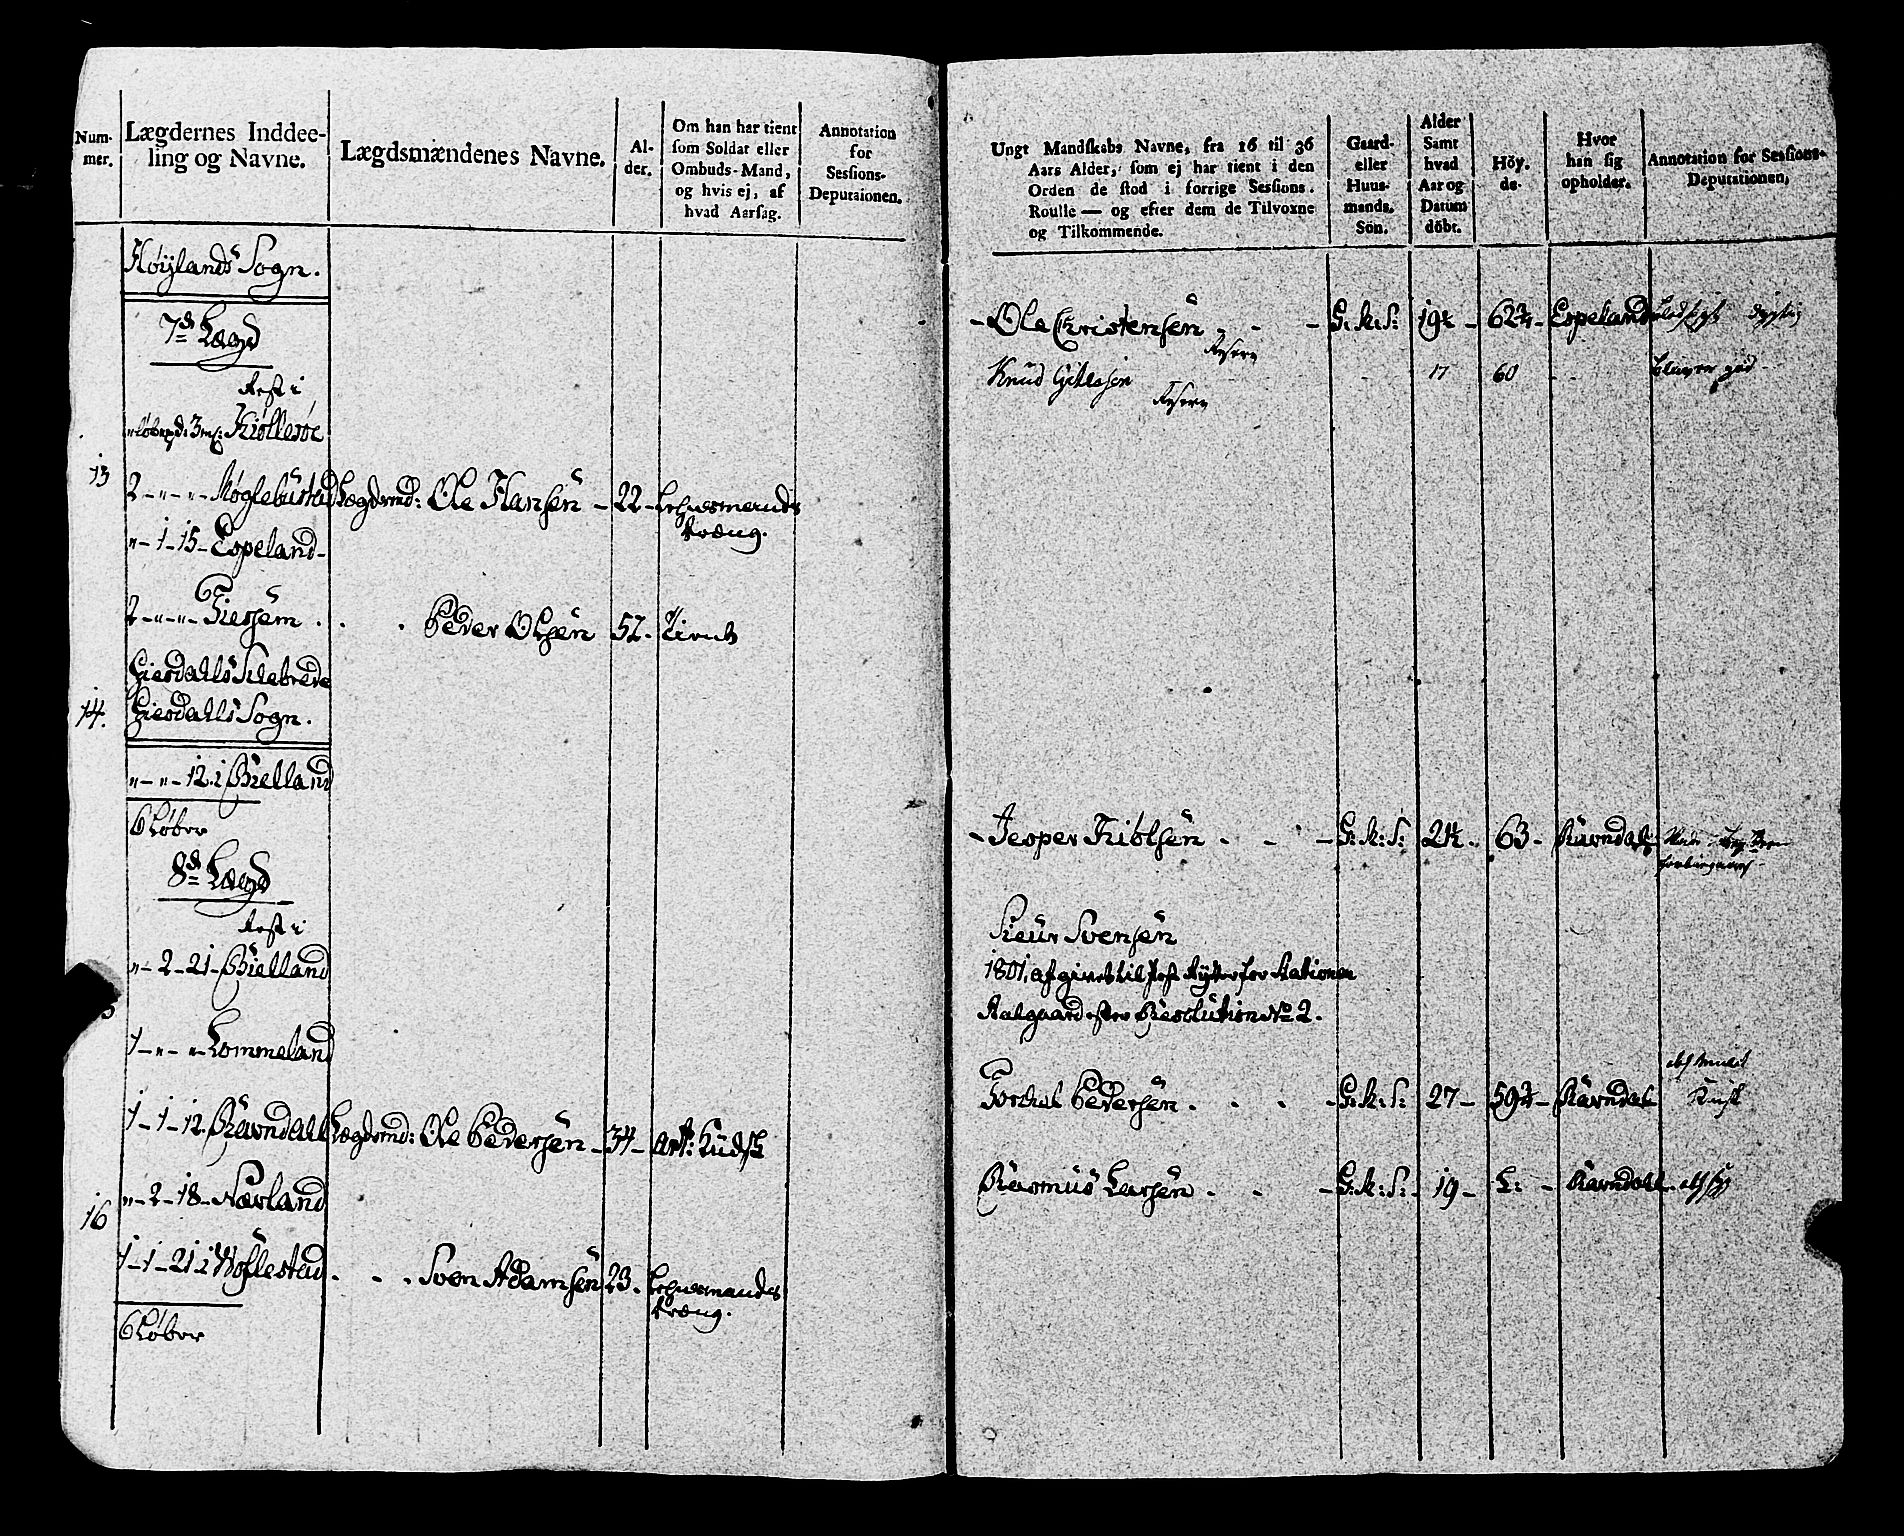 Num-
mer.
Lægdernes Inddee-
ling og Navne.
Lægdsmændenes Navne.
Al-
der.
Om han har tient
som Soldat eller
Ombuds-Mand,
og hvis ej, af
hvad Aarsag.
Annotation
for
Sessions-
Deputaionen.
Høylands Sogn.
7de Lægd
Rest i
Kiøllesøe
13
2 - " - " - Møglebüstad Lægdsmd: Ole Hansen - 22 - Lehnsmands
dræng.
" - 1 - 15 - Espeland -
2 - " - " - Fiersem . . . Peder Olsen 52 - Tient
Giesdalls
14. Giesdalls Sogn.
" - " - 12 i Bielland
6 Løber
8de Lægd
Rest i
" - 2 - 21 - Bielland
1 - " - " - Lommeland
1 - 1 - 12. Ravndall Lægdsmd: Ole Pedersen - 34 - Art:
" - 2 - 18 - Næsland
16
1 - 1 - 21 i Wøllestad . . . Sven Adamsen 23 - Lehnsmands
dræng.
6 Løber
Ungt Mandskabs Navne, fra 16 til 36
Aars Alder, som ej har tient i den
Orden de stod i forrige Sessions.
Roulle — og efter dem de Tilvoxne
og Tilkommende.
Gaard-
eller
Huus-
mands.
Sön.
Alder
Samt
hvad
Aar og
Datum
döbt.
Höy.
de.
Hvor
han sig
opholder.
Annotation for Sessions-
Deputationen,
- Ole Christensen - - - G: M: S: 19½ - 62¾ - Espeland
Reserv
Knud 17 60
Reserv
- Jesper Tiölsen . . . - G: M: S: 21½ - 63 - Ravndal
Sieur Svensen
1801, afginet til Post Rytter for Stationen
Aalgaard efter Resolution No 2.
Tordal Pedersen . . . - G: M: S: 27 - 59¾ - Ravndal
Rasmus Larsen . . - G: M: S: - 19 - L: - Ravndall